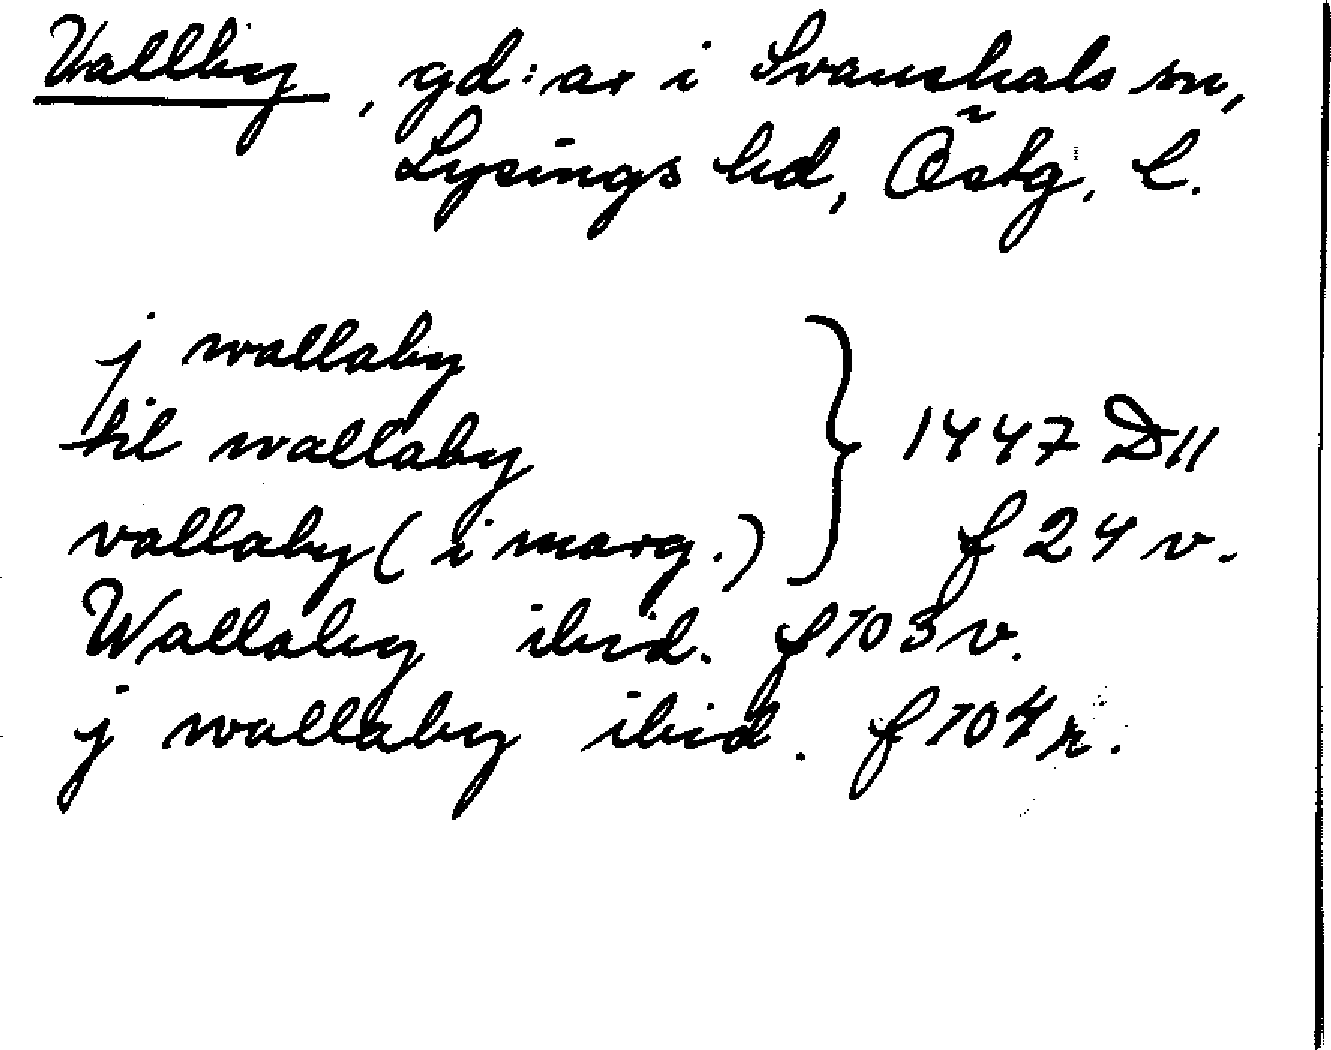 Vallby, gd:ar i Svanshals sn,
Lysings hd, Östg. l.
j wallaby
til wallaby
vallaby (i marg.) } 1447 D 11 f 24 v.
Wallaby ibid. f 103 v.
j wallaby ibid. f 104 r.